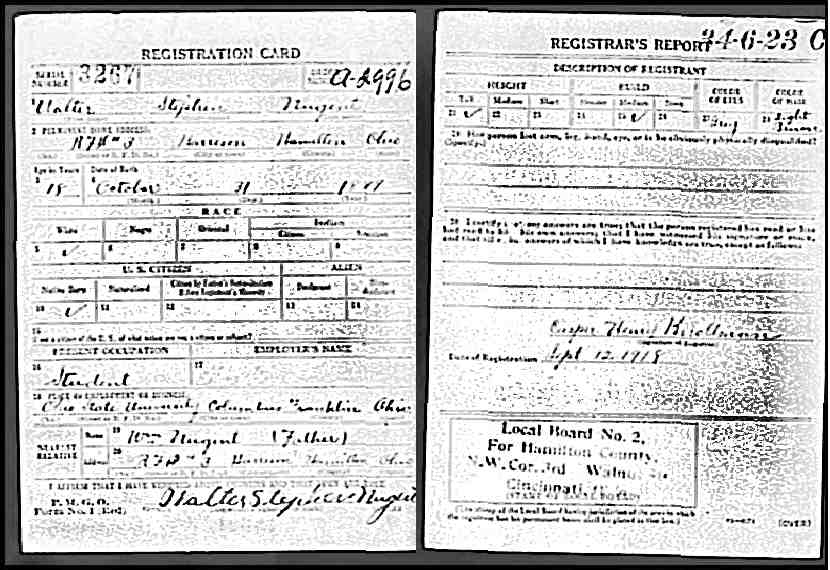 REGISTRATION CARD
SERIAL NUMBER 3267 ORDER NUMBER A-2996
Walter Stephen Nugent
2 PERMANENT HOME ADDRESS
RFD #3 Harrison Hamilton Ohio
Age in Years Date of Birth
18 October 31
(Month.) (Day.) (Year.)
RACE
White Negro Oriental Indian
Citizen
5 ✓ 6 7 8 9
U. S. CITIZEN ALIEN
Native Born Naturalized Citizen by Father's Naturalization Before Registrant's Majority Declarant Non-declarant
10 ✓ 11 12 13 14
15
If not a citizen of the U. S., of what nation are you a citizen or subject?
PRESENT OCCUPATION EMPLOYER'S NAME
16 Student 17
18 PLACE OF EMPLOYMENT OR BUSINESS
Ohio State University Columbus Franklin Ohio
NEAREST RELATIVE Name 19 Wm Nugent (Father)
Address 20 RFD #3 Harrison Hamilton Ohio
I AFFIRM THAT I HAVE VERIFIED ABOVE ANSWERS AND THAT THEY ARE TRUE
P. M. G. O.
Form No. 1 (Red) Walter Stephen Nugent
REGISTRAR'S REPORT 34-6-23 C
DESCRIPTION OF REGISTRANT
HEIGHT BUILD COLOR OF EYES COLOR OF HAIR
Tall Medium Short Slender Medium Stout
21 ✓ 22 23 24 25 ✓ 26 27 Grey 28 Light Brown
29 Has person lost arm, leg, hand, eye, or is he obviously physically disqualified?
(Specify.)
30 I certify that my answers are true; that the person registered has read or has
had read to him his own answers; that I have witnessed his signature or mark,
and that all of his answers of which I have knowledge are true, except as follows:
Henry
(Signature of Registrar)
Date of Registration Sept 12 1918
Local Board No. 2,
For Hamilton County,
N.W. Cor. 3rd Walnut
Cincinnati
(STAMP OF LOCAL BOARD)
(The stamp of the Local Board having jurisdiction of the area in which
the registrant has his permanent home shall be placed in this box.)
(OVER)